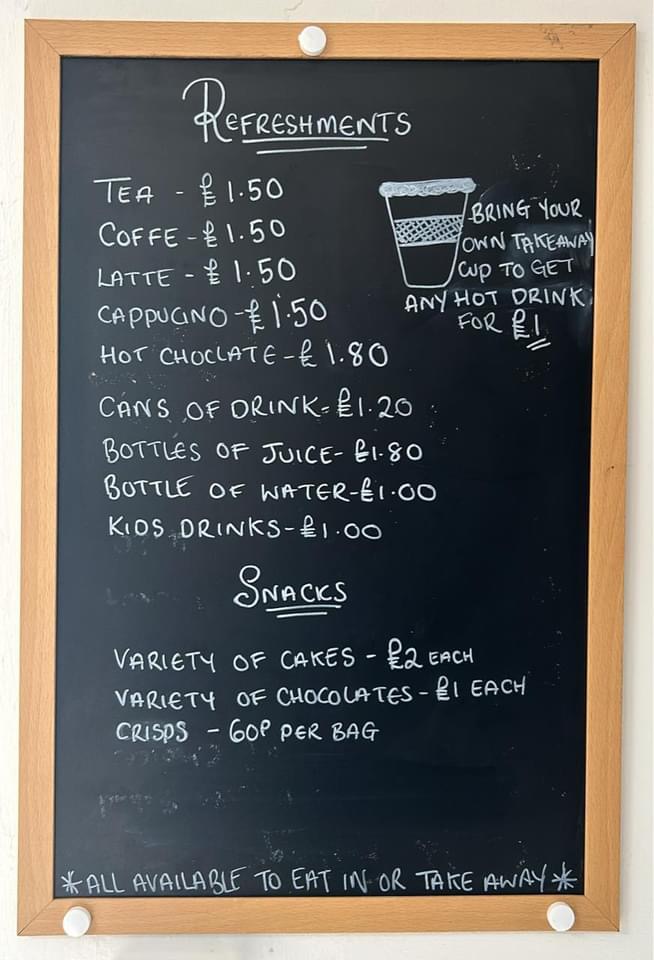 REFRESHMENTS
TEA - £1.50
COFFE - £1.50
LATTE - £1.50
CAPPUCINO - £1.50
HOT CHOCLATE - £1.80
BRING YOUR
OWN TAKEAWAY
CUP TO GET
ANY HOT DRINK
FOR £1
CANS OF DRINK - £1.20
BOTTLES OF JUICE - £1.80
BOTTLE OF WATER - £1.00
KIDS DRINKS - £1.00
SNACKS
VARIETY OF CAKES - £2 EACH
VARIETY OF CHOCOLATES - £1 EACH
CRISPS - 60P PER BAG
*ALL AVAILABLE TO EAT IN OR TAKE AWAY*